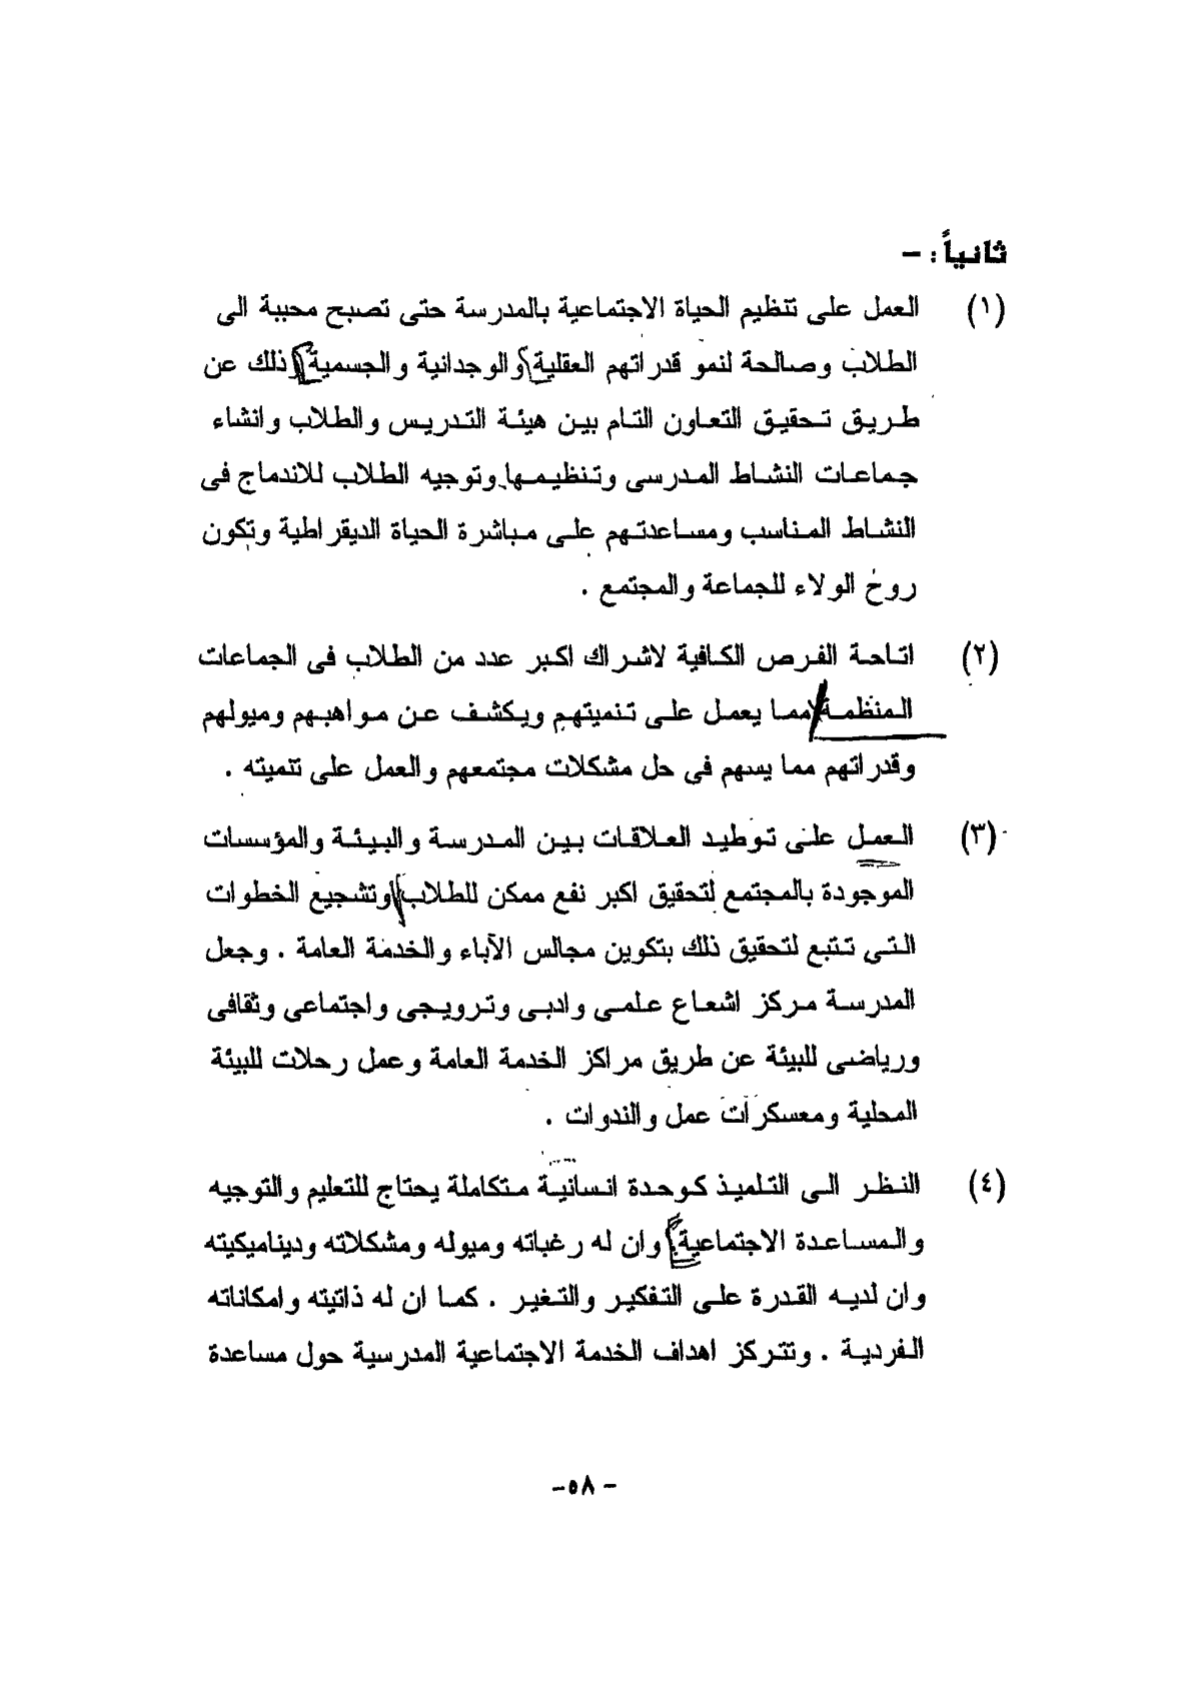 ثانياً : –
(١) العمل على تنظيم الحياة الاجتماعية بالمدرسة حتى تصبح محببة الى
الطلاب وصالحة لنمو قدراتهم العقلية والوجدانية والجسمية وذلك عن
طريق تحقيق التعاون التام بين هيئة التدريس والطلاب وانشاء
جماعات النشاط المدرسى وتنظيمها وتوجيه الطلاب للاندماج فى
النشاط المناسب ومساعدتهم على مباشرة الحياة الديقراطية وتكون
روح الولاء للجماعة والمجتمع .
(٢) اتاحة الفرص الكافية لاشراك اكبر عدد من الطلاب فى الجماعات
المنظمة مما يعمل على تنميتهم ويكشف عن مواهبهم وميولهم
وقدراتهم مما يسهم فى حل مشكلات مجتمعهم والعمل على تنميته .
(٣) العمل على توطيد العلاقات بين المدرسة والبيئة والمؤسسات
الموجودة بالمجتمع لتحقيق اكبر نفع ممكن للطلاب وتشجيع الخطوات
التى تتبع لتحقيق ذلك بتكوين مجالس الآباء والخدمة العامة . وجعل
المدرسة مركز اشعاع علمى وادبى وترويجى واجتماعى وثقافى
ورياضى للبيئة عن طريق مراكز الخدمة العامة وعمل رحلات للبيئة
المحلية ومعسكرات عمل والندوات .
(٤) النظر الى التلميذ كوحدة انسانية متكاملة يحتاج للتعليم والتوجيه
والمساعدة الاجتماعية وان له رغباته وميوله ومشكلاته وديناميكيته
وان لديه القدرة على التفكير والتغير . كما ان له ذاتيته وامكاناته
الفردية . وتتركز اهداف الخدمة الاجتماعية المدرسية حول مساعدة
- ٥٨-